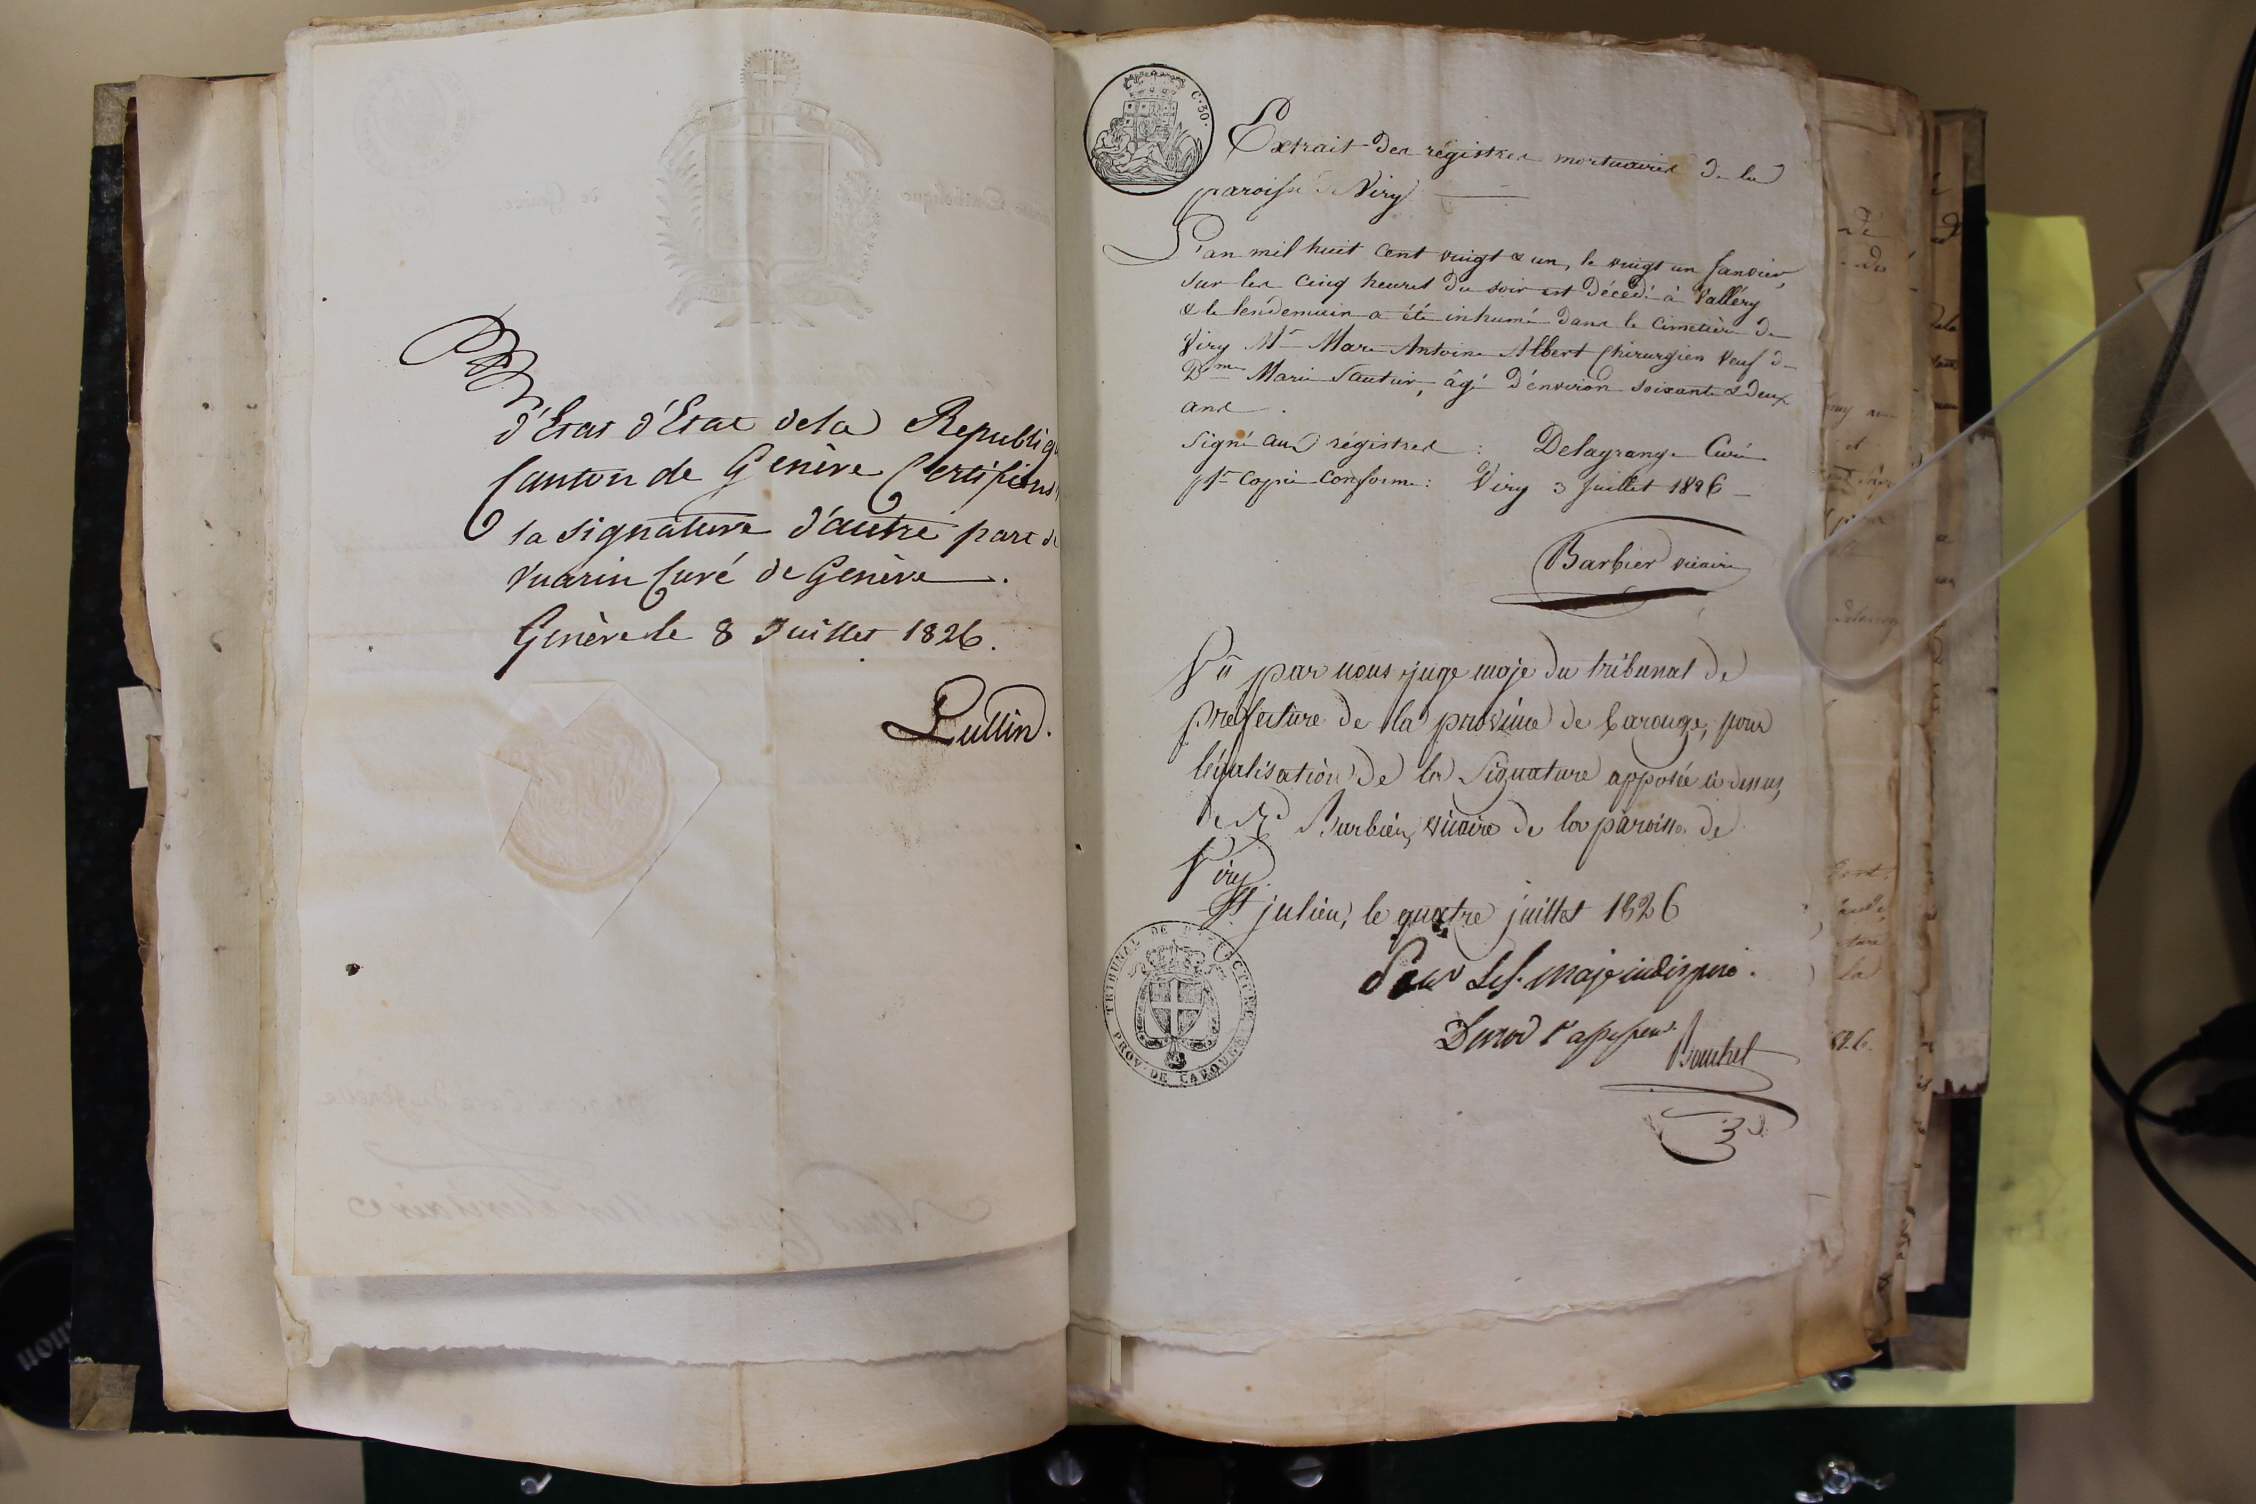 d'Etat d'Etat de la Republiq
Canton de Genève Certifions
la signature d'autre part d
Vuarin Curé de Genève.
Genève le 8 Juillet 1826.
Lullin.
C. 30.
Extrait des régistres mortuaires de la
paroisse de Viry
L'an mil huit cent vingt & un, le vingt un Janvier,
sur les cinq heures du soir est décédé à Valléry
& le lendemain a été inhumé dans le cimetière de
Viry Mr Marc Antoine Albert Chirurgien veuf de
Dme Marie Sautier, âgé d'environ soixante & deux
ans.
Signé aux régistres : Delagrange Curé
pr Copie conforme : Viry 3 Juillet 1826
Barbier vicaire
Vu par nous juge maje du tribunal de
préfecture de la province de Carouge, pour
légalisation de la signature apposée ci dessus,
de Rd Barbier, vicaire de la paroisse de
Viry.
St julien, le quatre juillet 1826
TRIBUNAL DE PREFECTURE
PROV. DE CAROUGE
Pour Le J. Maje indisposé.
Bouchet